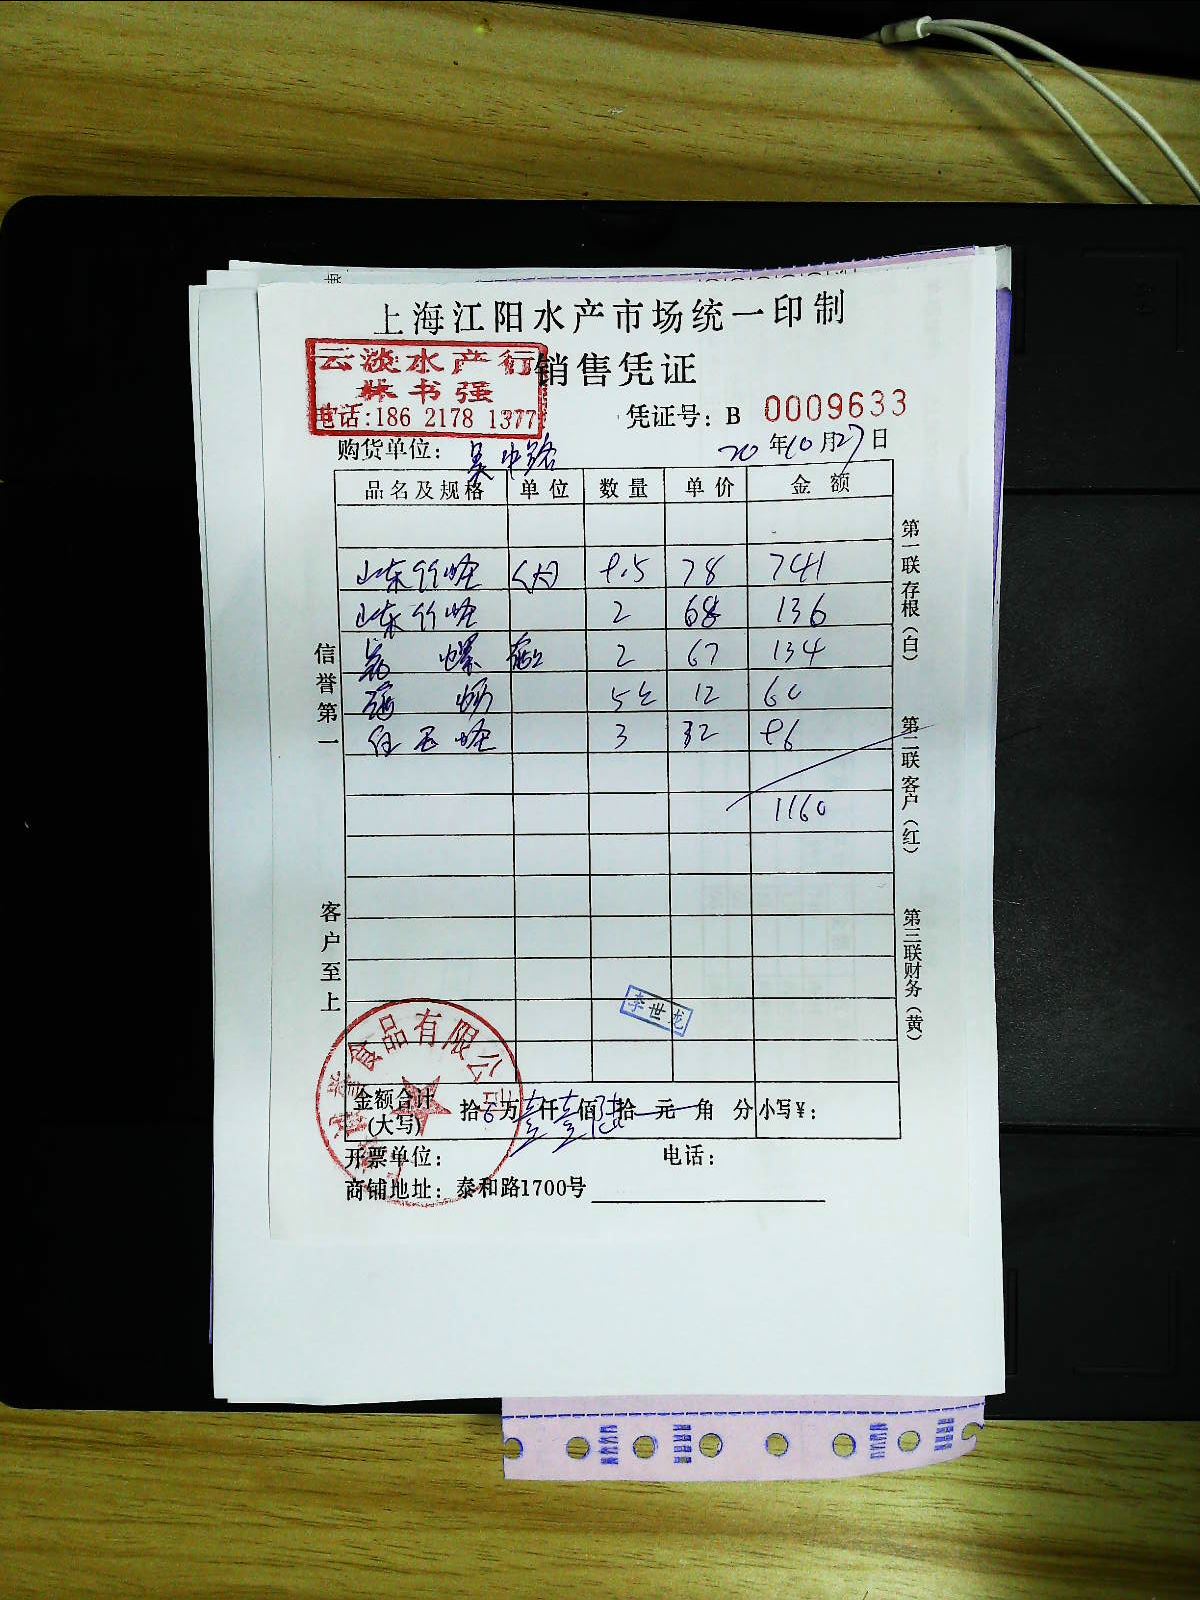 上海江阳水产市场统一印制
云淡水产行
林书强
电话:186 2178 1377
销售凭证
凭证号: B 0009633
购货单位: 吴中路
20年10月27日
品名及规格 单位 数量 单价 金额
山东竹蛏 (大) 9.5 78 741
山东竹蛏 2 68 136
螺 2 67 134
5 12 60
蛏 3 32 96
1160
信誉第一
客户至上
第一联存根(白)
第二联客户(红)
第三联财务(黄)
李世龙
食品有限公司
金额合计(大写) 拾 万壹仟壹佰陆拾 元 角 分 小写¥:
开票单位: 电话:
商铺地址: 泰和路1700号